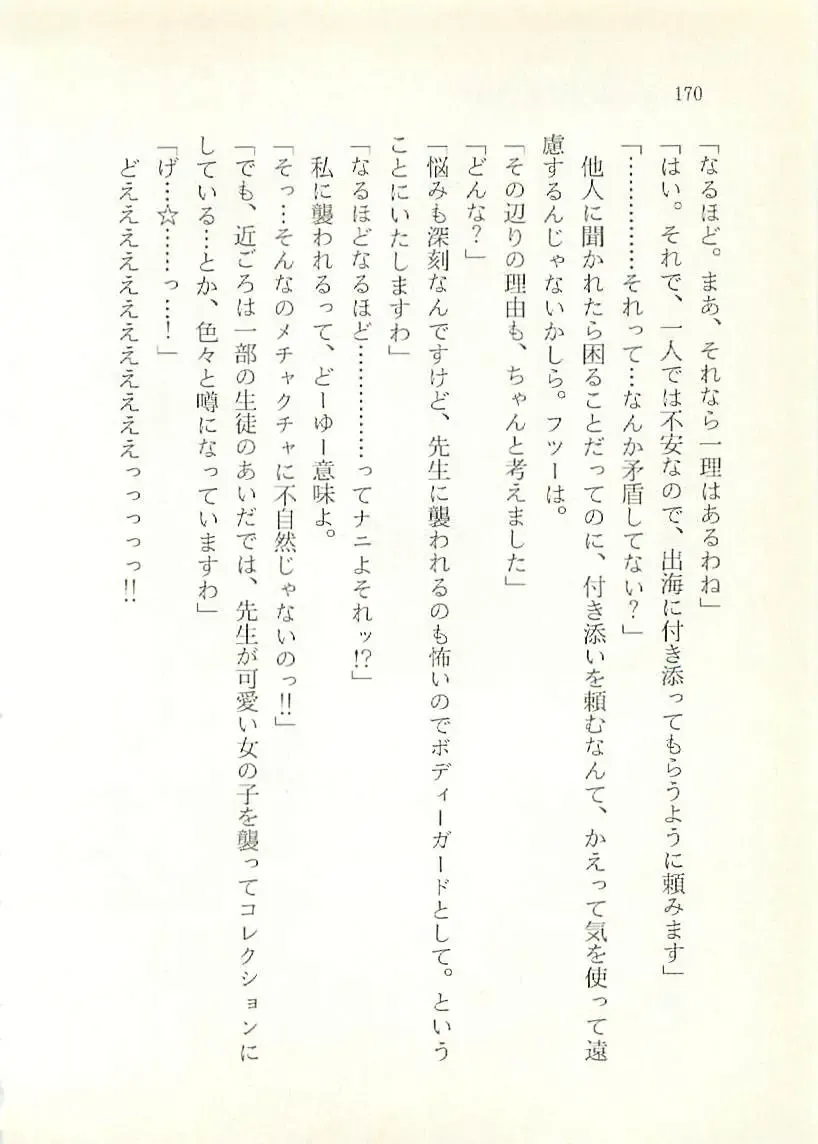 170
「なるほど。まあ、それなら一理はあるわね」
「はい。それで、一人では不安なので、出海に付き添ってもらうように頼みます」
「……………それって…なんか矛盾してない？」
他人に聞かれたら困ることだってのに、付き添いを頼むなんて、かえって気を使って遠
慮するんじゃないかしら。フツーは。
「その辺りの理由も、ちゃんと考えました」
「どんな？」
「悩みも深刻なんですけど、先生に襲われるのも怖いのでボディーガードとして。という
ことにいたしますわ」
「なるほどなるほど……………ってナニよそれッ!?」
私に襲われるって、どーゆー意味よ。
「そっ…そんなのメチャクチャに不自然じゃないのっ!!」
「でも、近ごろは一部の生徒のあいだでは、先生が可愛い女の子を襲ってコレクションに
している…とか、色々と噂になっていますわ」
「げ…☆……っ…！」
どええええええええええええっっっっっ!!